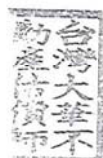 台灣大華不
動產估價師